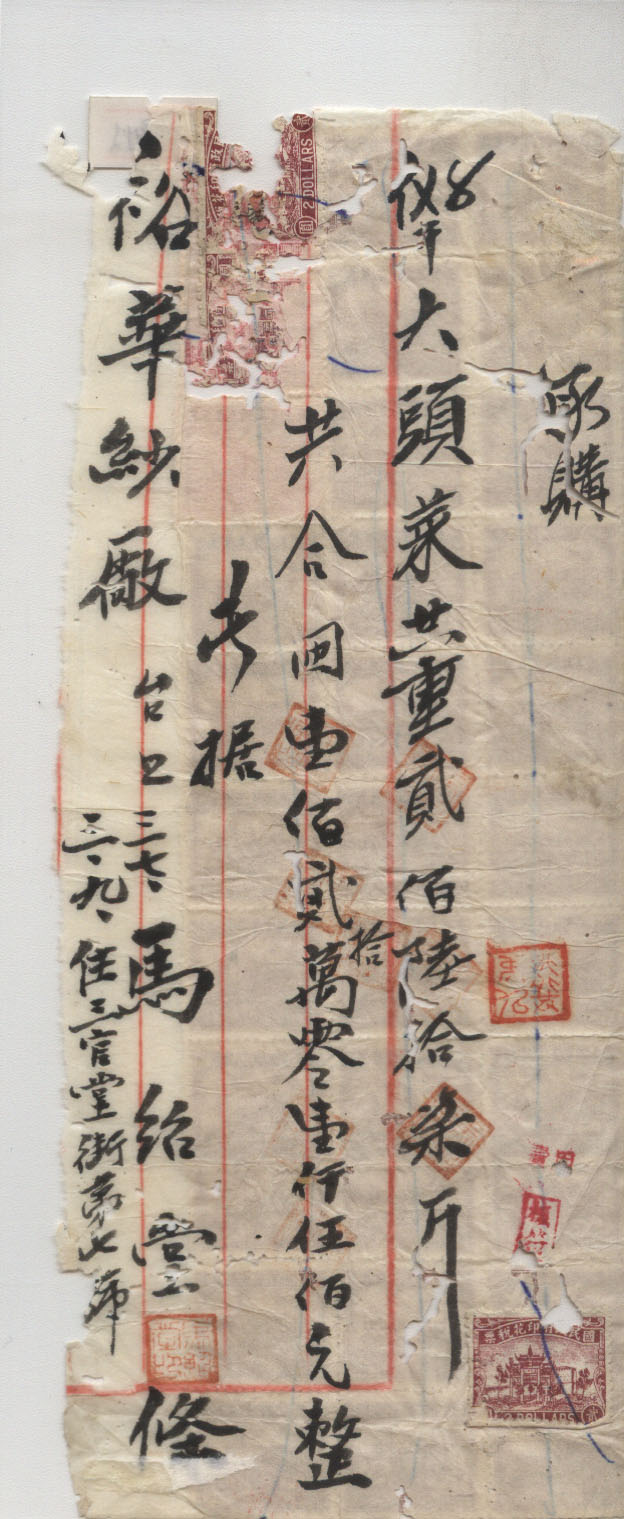 承購
大頭菜共重貳佰陸拾柒斤
共合國壹佰貳拾萬零壹仟伍佰元整
此据
裕華紗廠 台照
三七、三、九、
馬紹堂 條
住三官堂街第七號
國民政府印花稅票
2 DOLLARS
2 DOLLARS